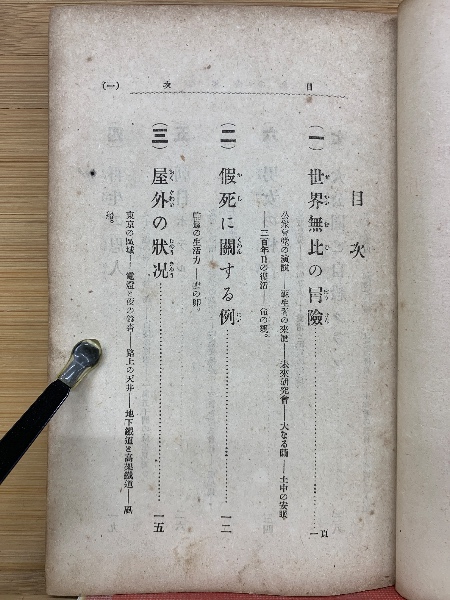 目次
(一)
目次
(一) 世界無比の冒險 一頁
公衆會堂の演説――蘇生者の來歴――未來研究會――大なる繭――土中の安眠
――三百年目の復活――
(二) 假死に關する例 一二
の生活力――の卵。
(三) 屋外の狀況 一五
東京の區域――電燈と夜の――路上の天井――地下鐵道と高架鐵道――風